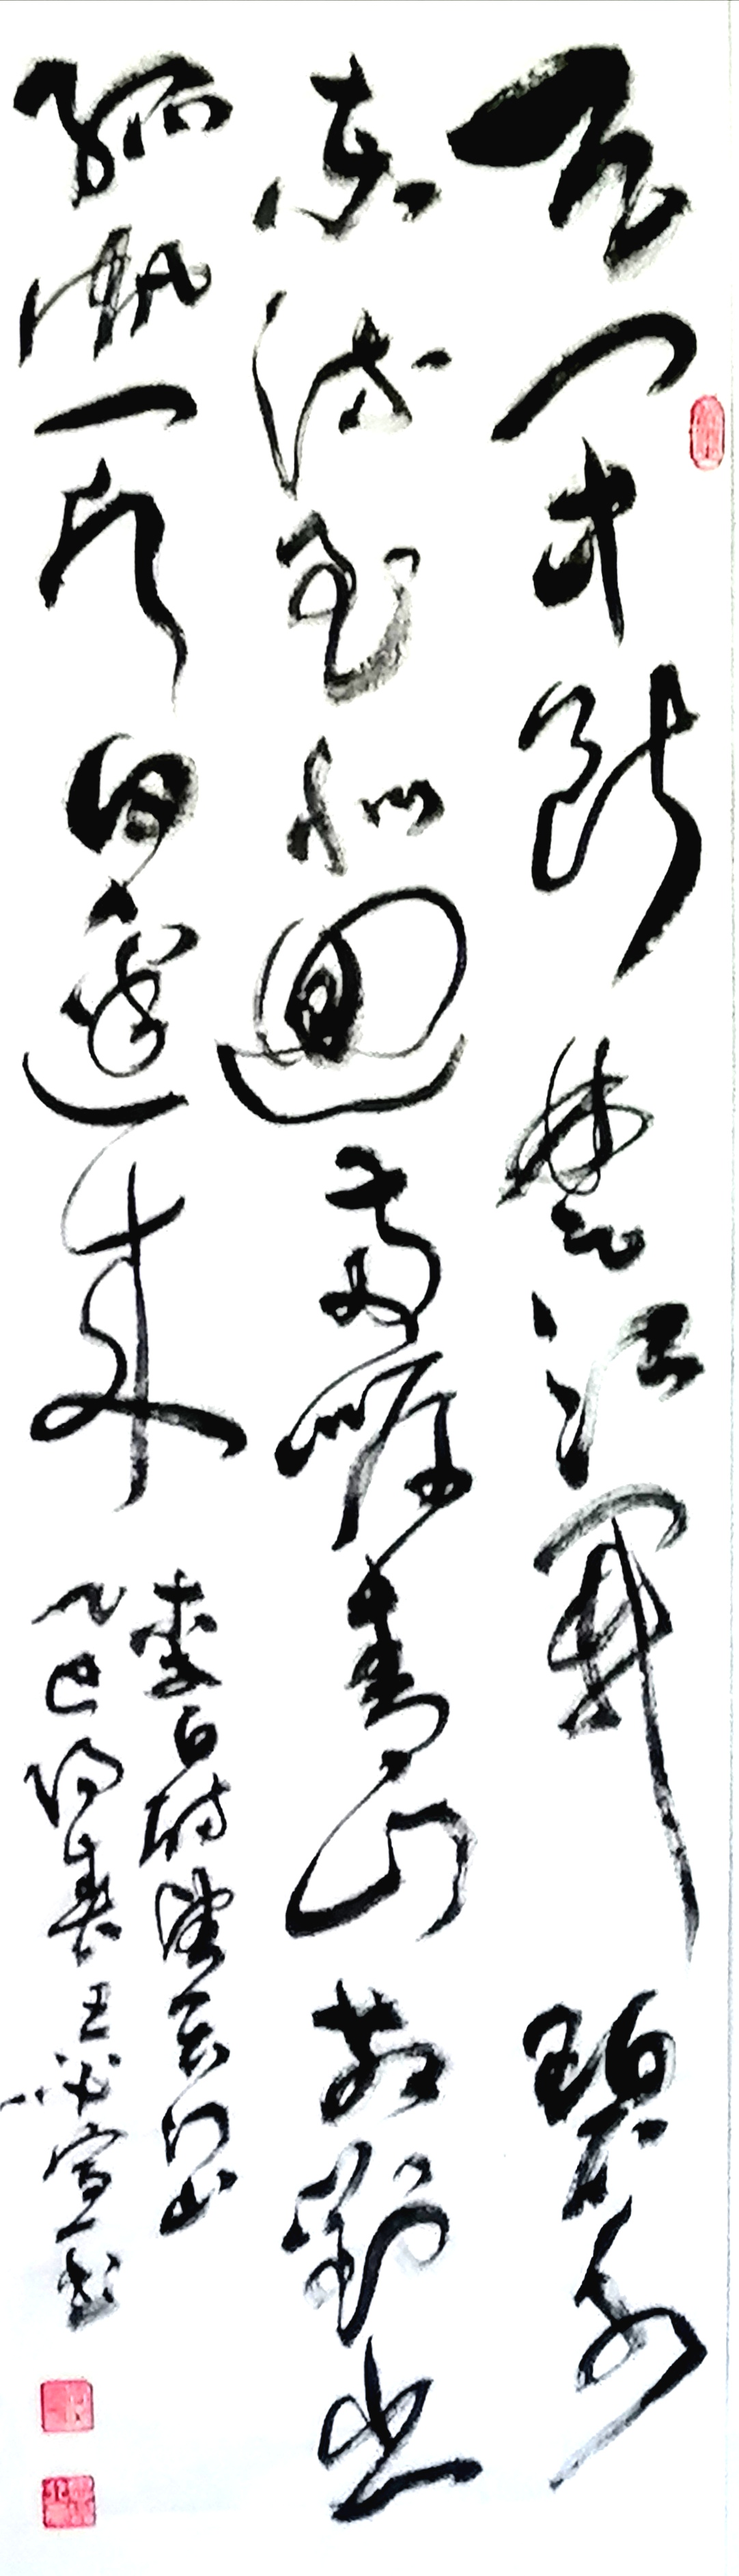 天门中断楚江開碧水
东流至此迴两岸青山相對出
孤帆一片日邊来
李白诗望天门山
乙巳阳春王书